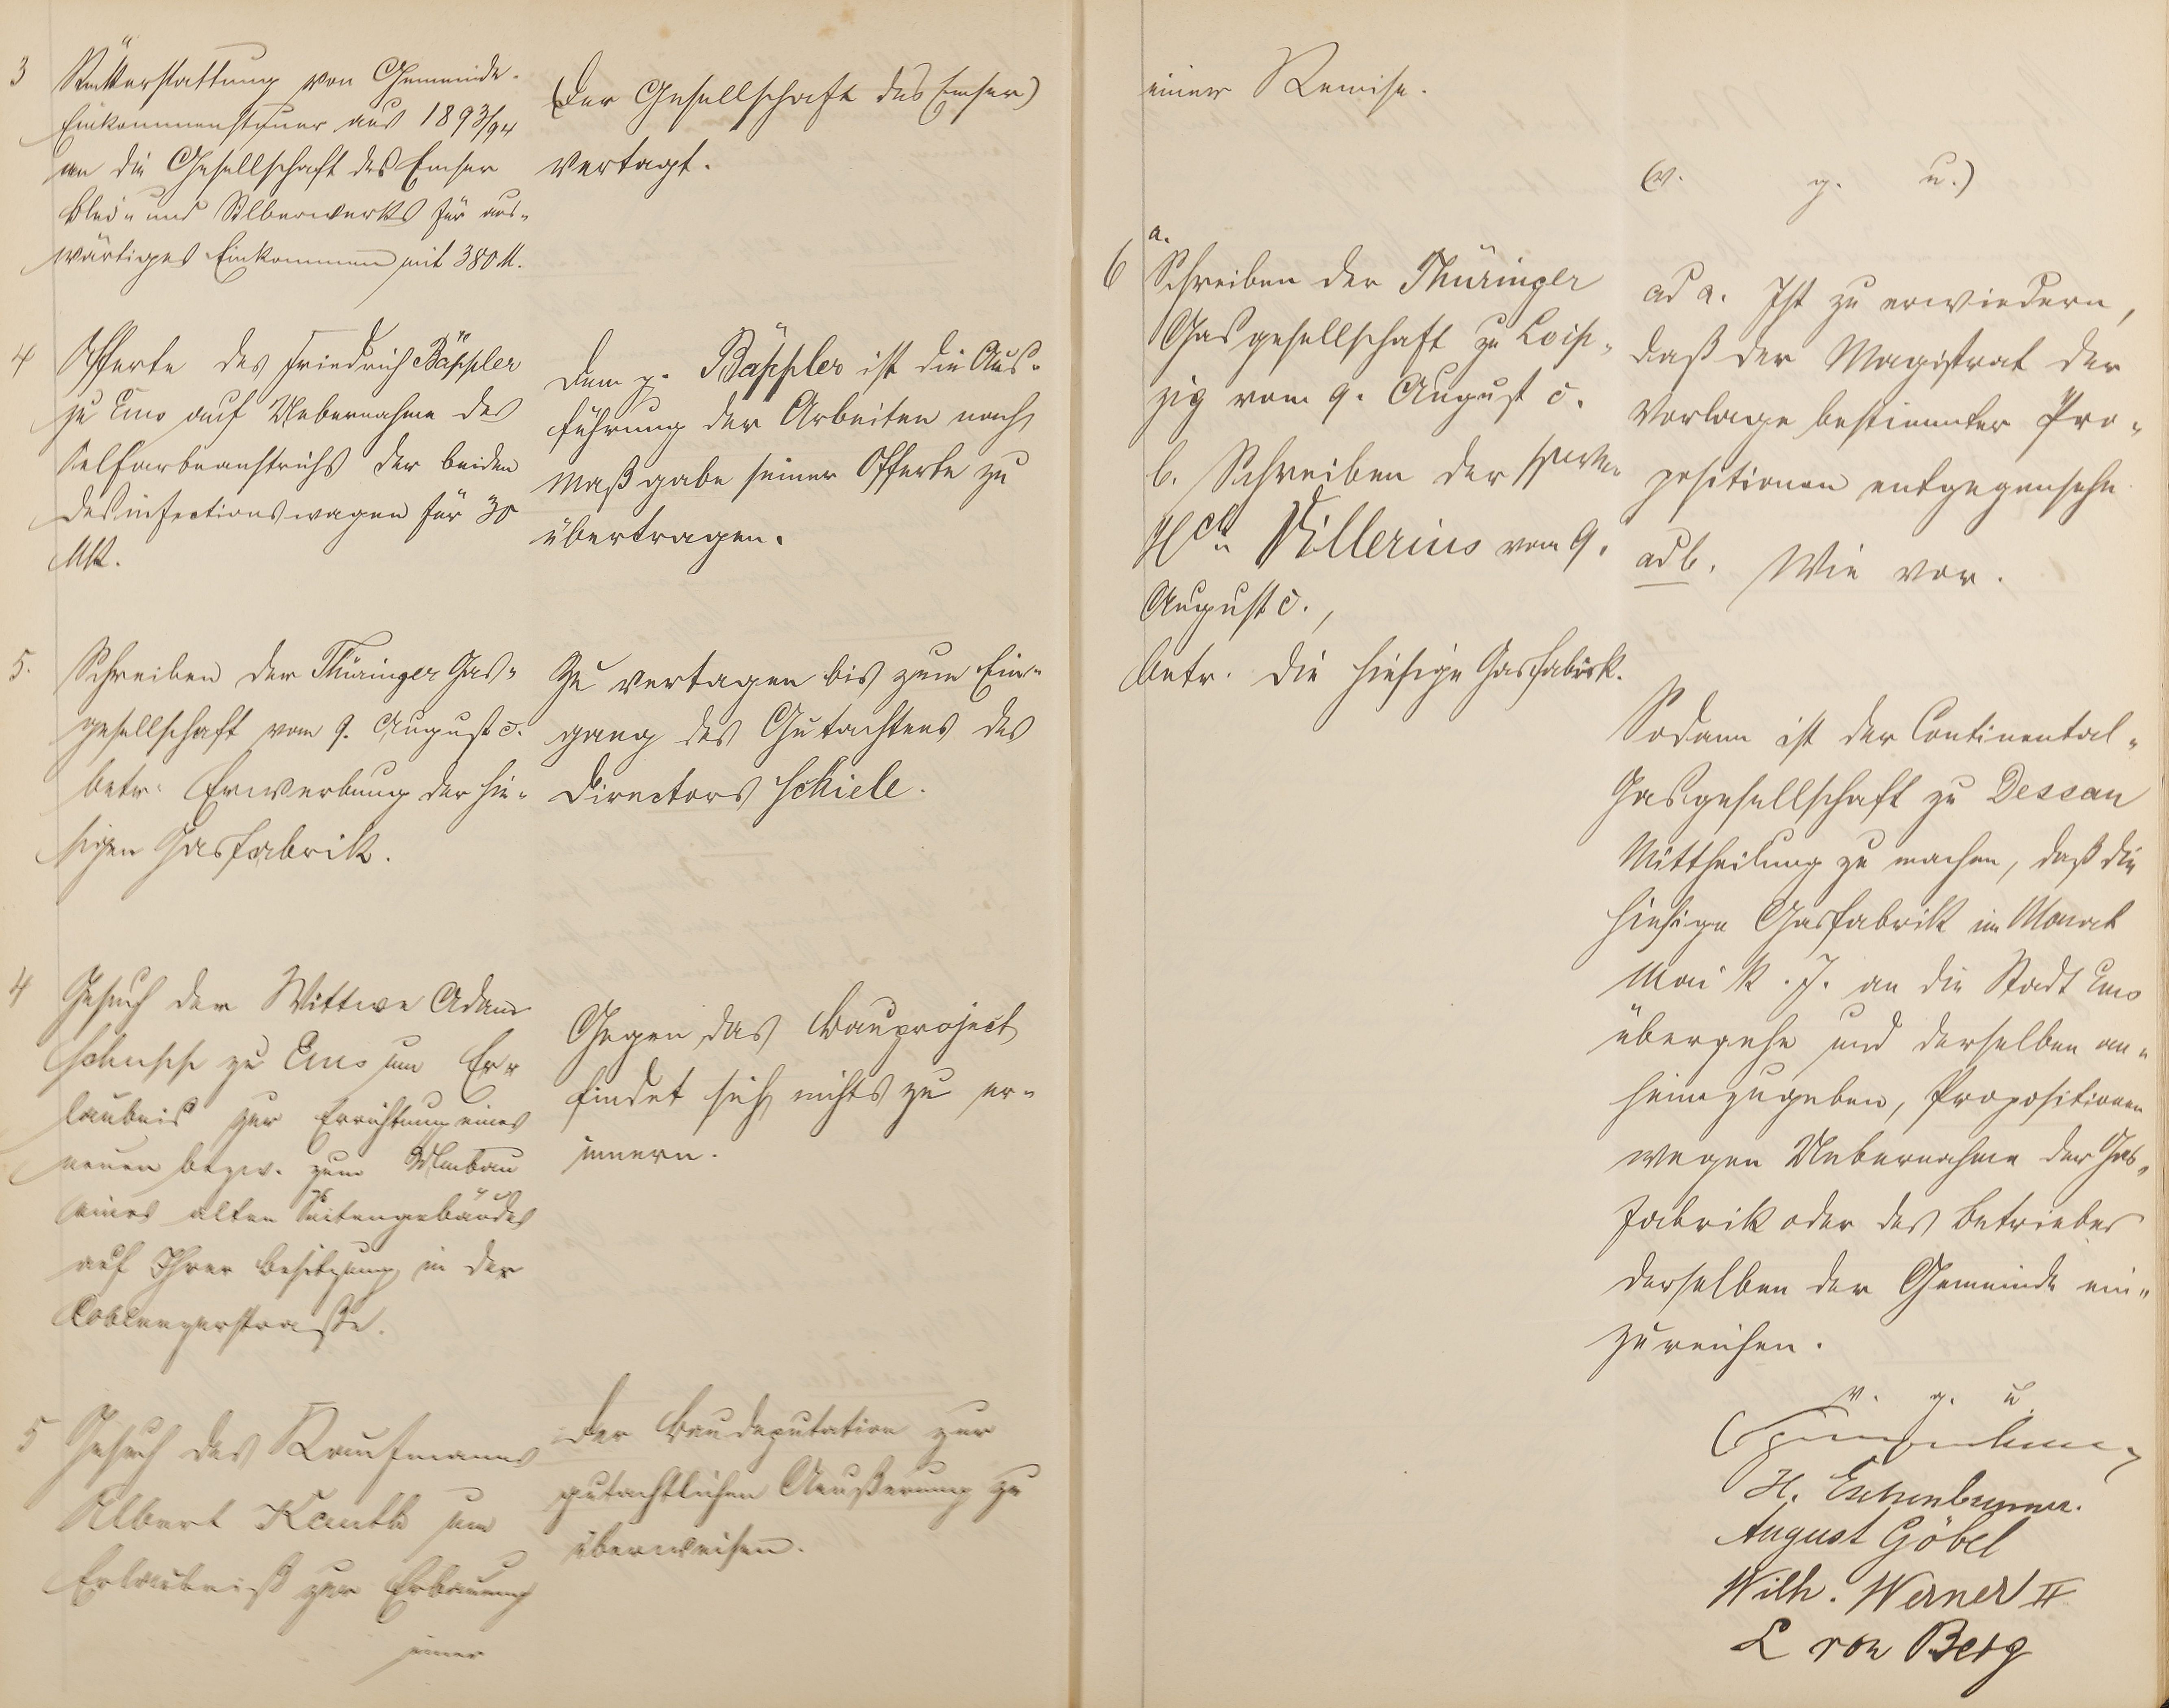 3 Rückerstattung von Gemeinde-
Einkommensteuer aus 1893/94
an die Gesellschaft des Emser
Blei- und Silberwerks für aus-
wärtiges Einkommen mit 380 M.
(Der Gesellschaft des Emser)
vertagt.
4 Offerte des Friedrich Bäppler
zu Ems auf Uebernahme des
Oelfarbeanstrichs der beiden
Desinfectionswagen für 30
Mk.
Dem p. Bäppler ist die Aus-
führung der Arbeiten nach
Maßgabe seiner Offerte zu
übertragen.
5. Schreiben der Thüringer Gas-
gesellschaft vom 9. August c.
betr. Erwerbung der hie-
sigen Gasfabrik.
Zu vertagen bis zum Ein-
gang des Gutachtens des
Directors Schiele.
4 Gesuch der Wittwe Adam
Schupp zu Ems um Er-
laubnis zur Errichtung eines
neuen bezw. zum Umbau
eines alten Seitengebäudes
auf Ihrer Besitzung in der
Coblenzerstraße.
Gegen das Bauproject
findet sich nichts zu er-
innern.
5 Gesuch des Kaufmanns
Albert Kauth um
Erlaubniß zur Erbauung
einer
Der Baudeputation zur
gutachtlichen Aeußerung zu
überweisen.
einer Remise.
(v. g. u.)
6 a.
Schreiben der Thüringer
Gasgesellschaft zu Leip-
zig vom 9. August c.
b. Schreiben der
Villerius vom 9.
August c.,
betr. die hiesige Gasfabrik.
ad a. Ist zu erwiedern,
daß der Magistrat der
Vorlage bestimmter Pro-
positionen entgegensehe
ad b. Wie vor.
Sodann ist der Continental-
Gasgesellschaft zu Dessau
Mittheilung zu machen, daß die
hiesige Gasfabrik im Monat
Mai k. J. an die Stadt Ems
übergehe und derselben an-
heimzugeben, Propositionen
wegen Uebernahme der Gas-
fabrik oder des Betriebes
derselben der Gemeinde ein-
zureichen.
v. g. u.
H. Eschenbrenner.
August Göbel
Wilh. Werner II
L von Berg